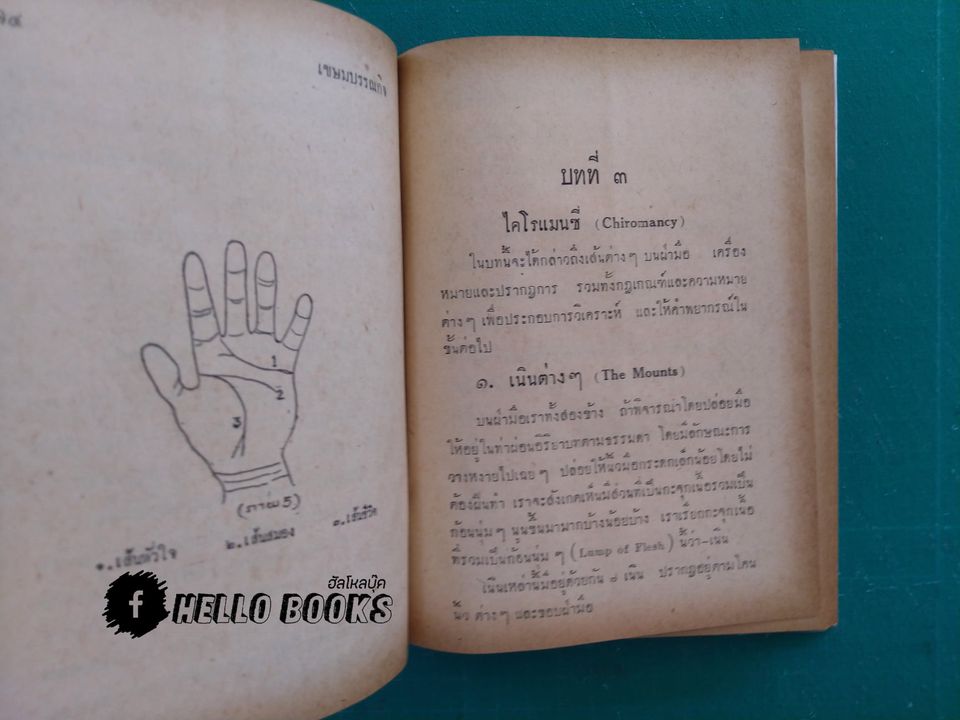 เขษมบรรณกิจ
1
2
3
(ภาพ 5)
๑. เส้นหัวใจ ๒. เส้นสมอง ๓. เส้นชีวิต
ฮัลโหลบุ๊ค
f HELLO BOOKS
บทที่ ๓
ไคโรแมนซี่ (Chiromancy)
ในบทนี้จะได้กล่าวถึงเส้นต่างๆ บนฝ่ามือ เครื่อง
หมายและปรากฏการ รวมทั้งกฎเกณฑ์และความหมาย
ต่างๆ เพื่อประกอบการวิเคราะห์ และให้คำพยากรณ์ใน
ขั้นต่อไป
๑. เนินต่างๆ (The Mounts)
บนฝ่ามือเราทั้งสองข้าง ถ้าพิจารณาโดยปล่อยมือ
ให้อยู่ในท่าผ่อนอิริยาบทตามธรรมดา โดยมีลักษณะการ
วางหงายไปเฉยๆ ปล่อยให้นิ้วมือกระดกเล็กน้อยโดยไม่
ต้องฝืนทำ เราจะสังเกตเห็นมีส่วนที่เป็นกะจุกเนื้อรวมเป็น
ก้อนนุ่มๆ นูนขึ้นมามากบ้างน้อยบ้าง เราเรียกกะจุกเนื้อ
ที่รวมเป็นก้อนนุ่มๆ (Lump of Flesh) นี้ว่า-เนิน
เนินเหล่านี้มีอยู่ด้วยกัน ๗ เนิน ปรากฏอยู่ตามโคน
นิ้ว ต่างๆ และขอบฝ่ามือ